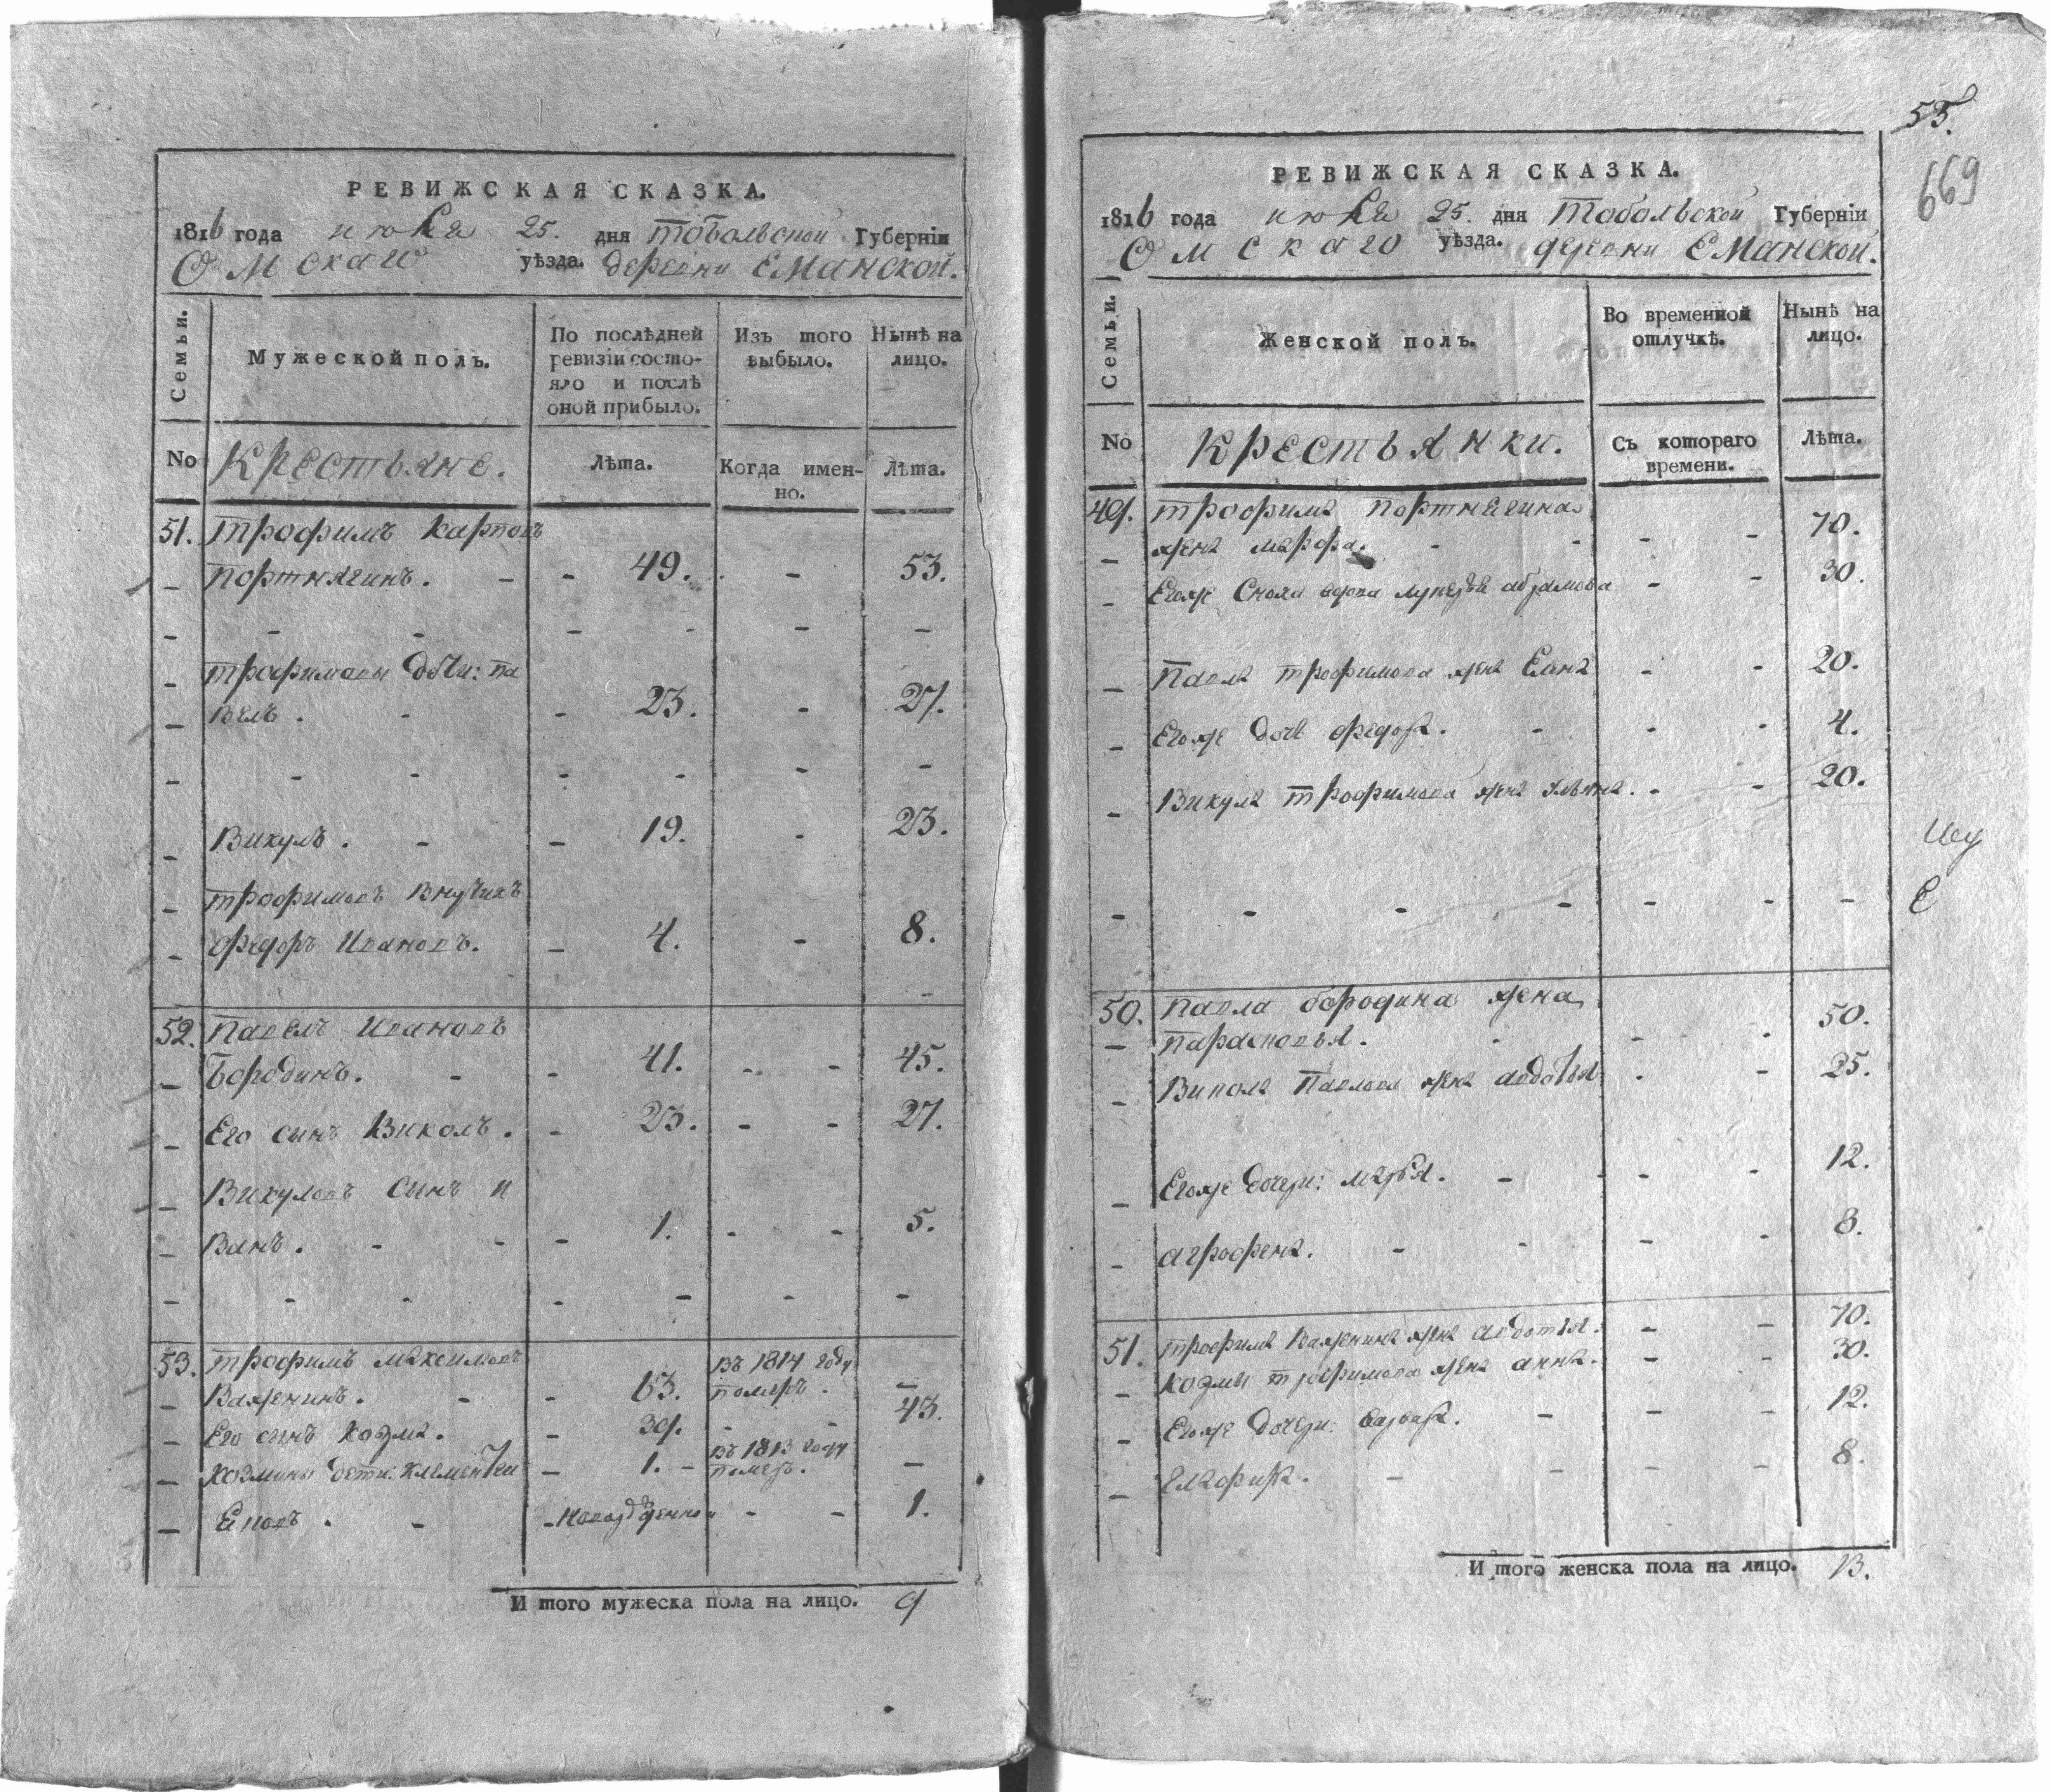 РЕВИЖСКАЯ СКАЗКА.
1816 года июля 25. дня Тобольской Губерніи
Омскаго уѣзда. деревни Еманской.
Семьи.
Мужеской полъ.
По послѣдней ревизіи состо-
яло и послѣ
оной прибыло.
Изъ того
выбыло.
Нынѣ на
лицо.
No
Крестьяне.
Лѣта.
Когда имен-
но.
Лѣта.
51. Трофимъ Карповъ
Портнягинъ. - - 49. - 53.
Трофимовы дѣти: Па
велъ. - - 23. - 27.
Викулъ. - - 19. - 23.
Трофимовъ внучикъ
Федоръ Ивановъ. - 4. - 8.
52. Павелъ Ивановъ
Бородинъ. - - 41. - - 45.
Его сынъ Виколъ. - 23. - - 27.
Викуловъ сынъ И
ванъ. - - - 1. - - 5.
53. Трофимъ Максимовъ въ 1814 году
Важенинъ. - - 63. померъ. -
Его сынъ Козма. - 39. - - 43.
Козмины дети: Клементеи - 1. - въ 1813 году
померъ. -
- новорожденной - - 1.
И того мужеска пола на лицо. 9
55.
669
РЕВИЖСКАЯ СКАЗКА.
1816 года июля 25. дня Тобольской Губерніи
Омскаго уѣзда. деревни Еманской.
Семьи.
Женской полъ.
Во временной
отлучкѣ.
Нынѣ на
лицо.
No
Крестьянки.
Съ котораго
времени.
Лѣта.
49. Трофима Портнягина
жена марфа. - - - - 70.
Егоже Сноха вдова абрамова - - 30.
Павла трофимова жена Елена - - 20.
Егоже доч федора. - - - 4.
Викула трофимова жена ульяна. - - 20.
50. Павла бородина жена
Парасковья. - - - 50.
Викола Павлова жена авдотья - - 25.
Егоже дочери: марья. - - - 12.
агрофена. - - - - 8.
51. трофима Важенина жена авдотья. - - 70.
козмы трофимова жена анна. - - 30.
Егоже дочери: варвара. - - - 12.
глафира. - - - - 8.
И того женска пола на лицо. 13.